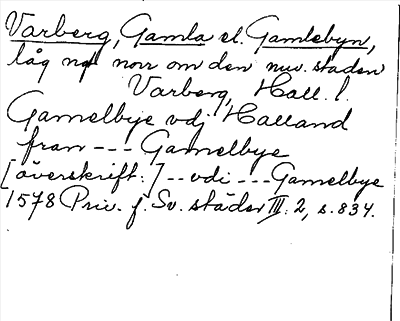 Varberg, Gamla el. Gamlebyn,
låg norr om den nuv. staden
Varberg, Hall. l.
Gamelbye vdj Halland
fran --- Gamelbye
[överskrift:] -- vdi --- Gamelbye
1578 Priv. f. Sv. städer III: 2, s. 834.